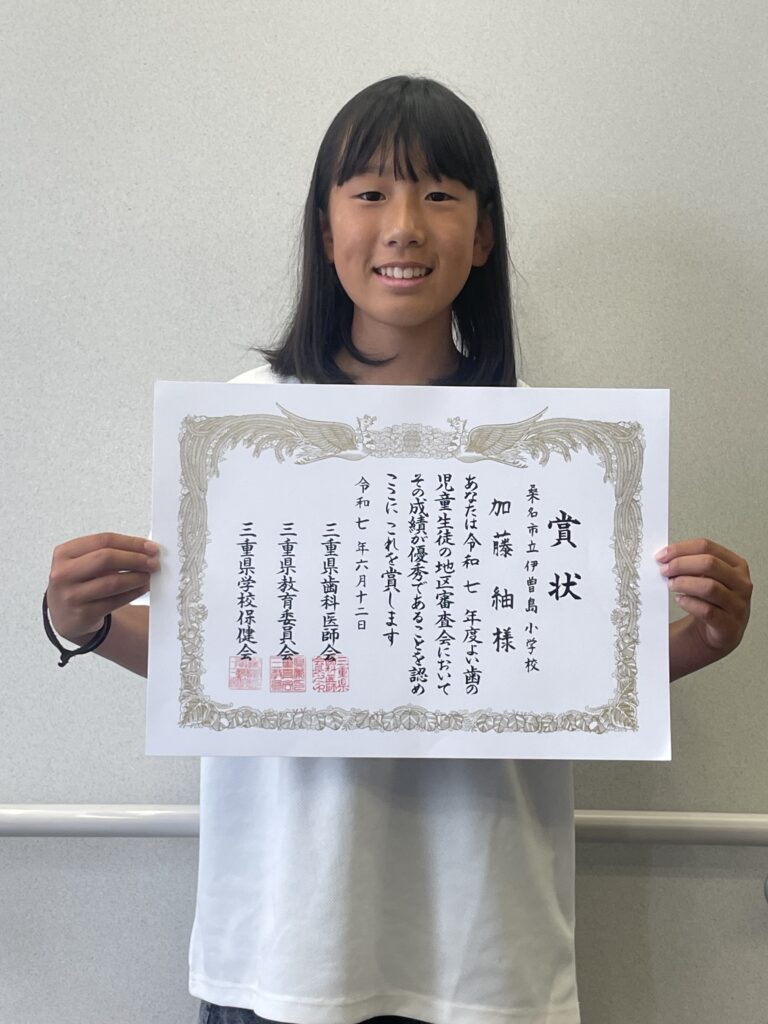 賞状
桑名市立伊曽島小学校
加藤 紬 様
あなたは令和 七 年度よい歯の
児童生徒の地区審査会において
その成績が優秀であることを認め
ここに これを賞します
令和 七 年六月十二日
三重県歯科医師会
三重県教育委員会
三重県学校保健会